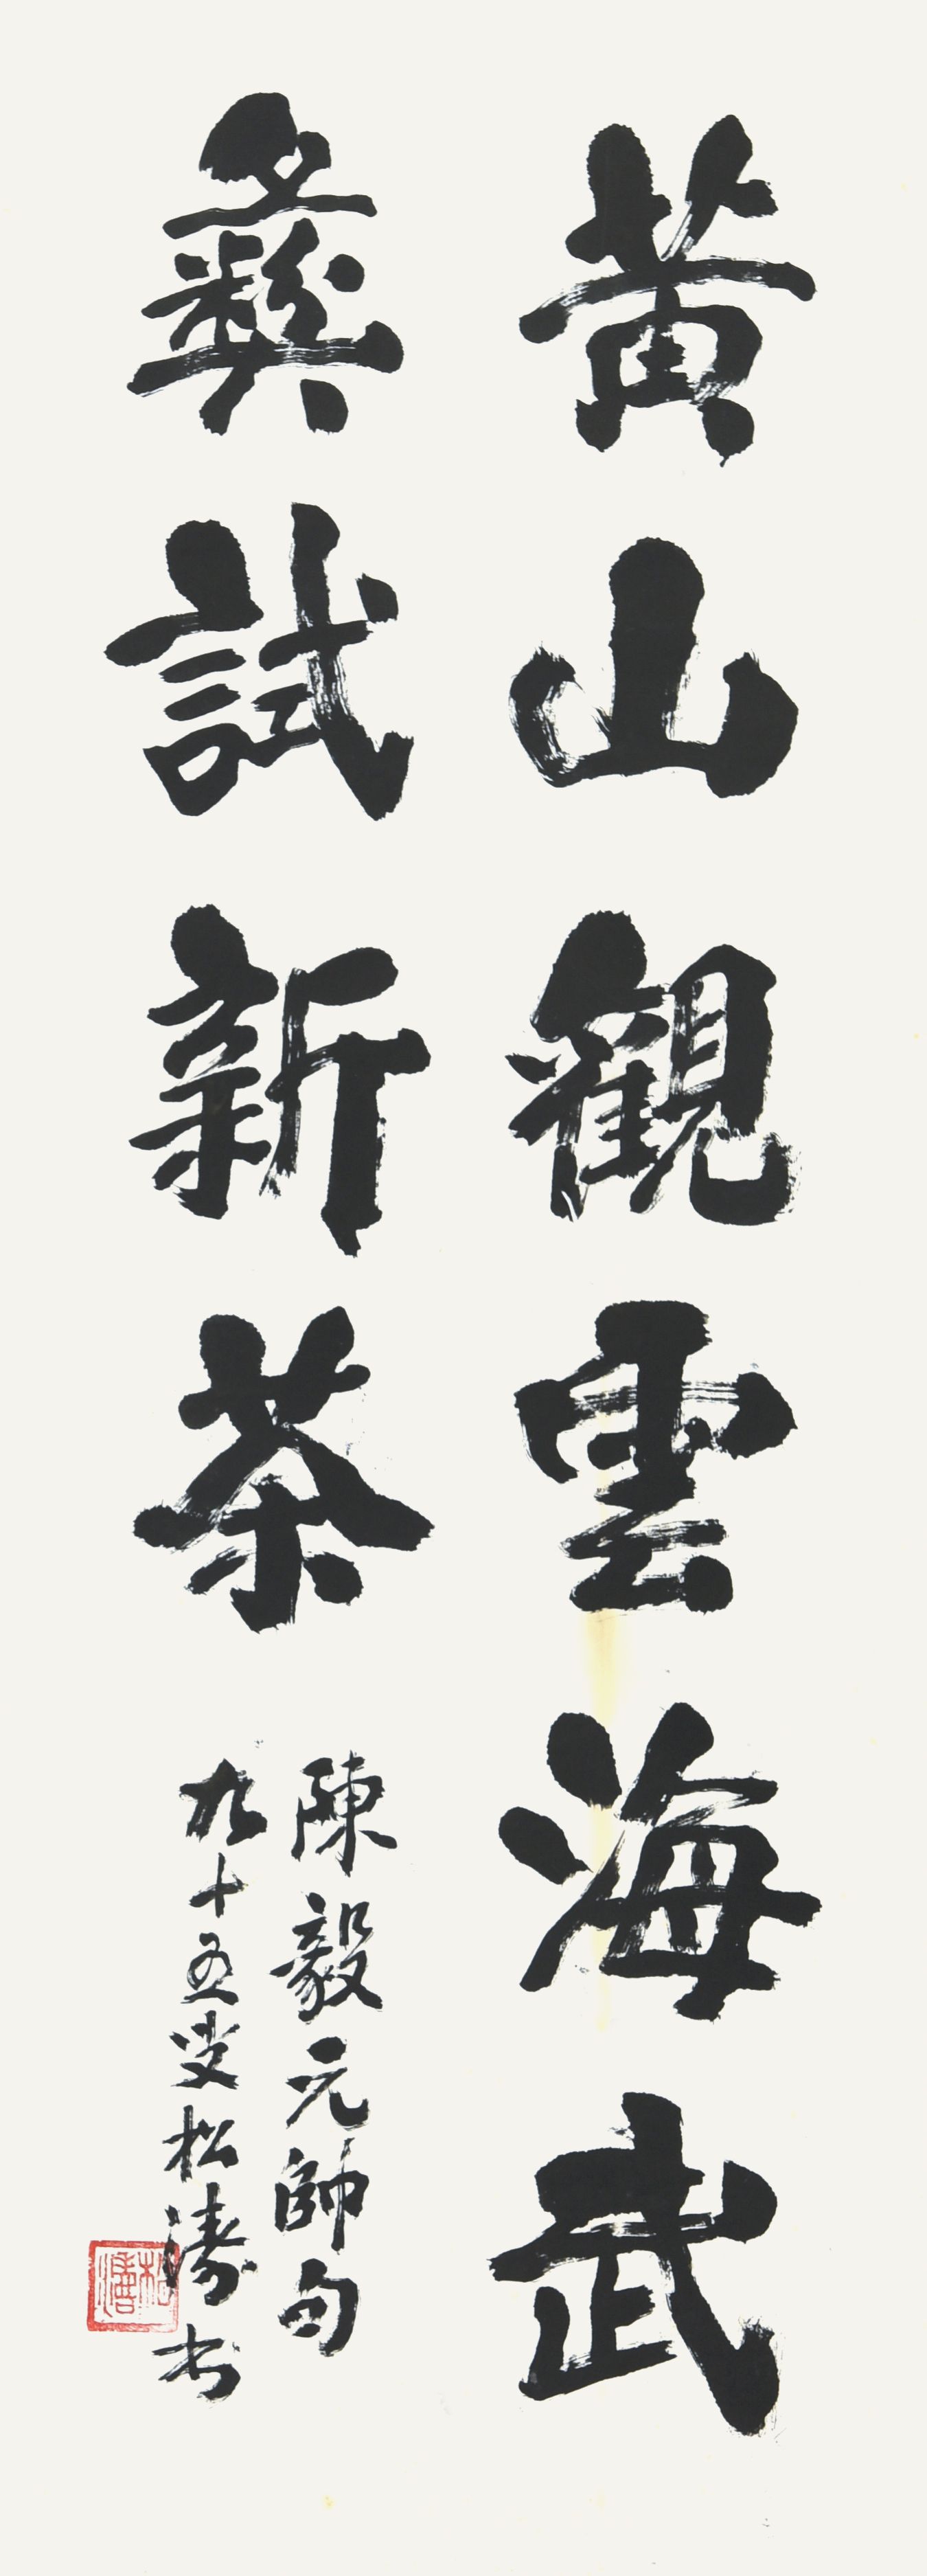 黄山觀雲海武
彜試新茶
陳毅元帥句
九十五叟松濤书
松濤